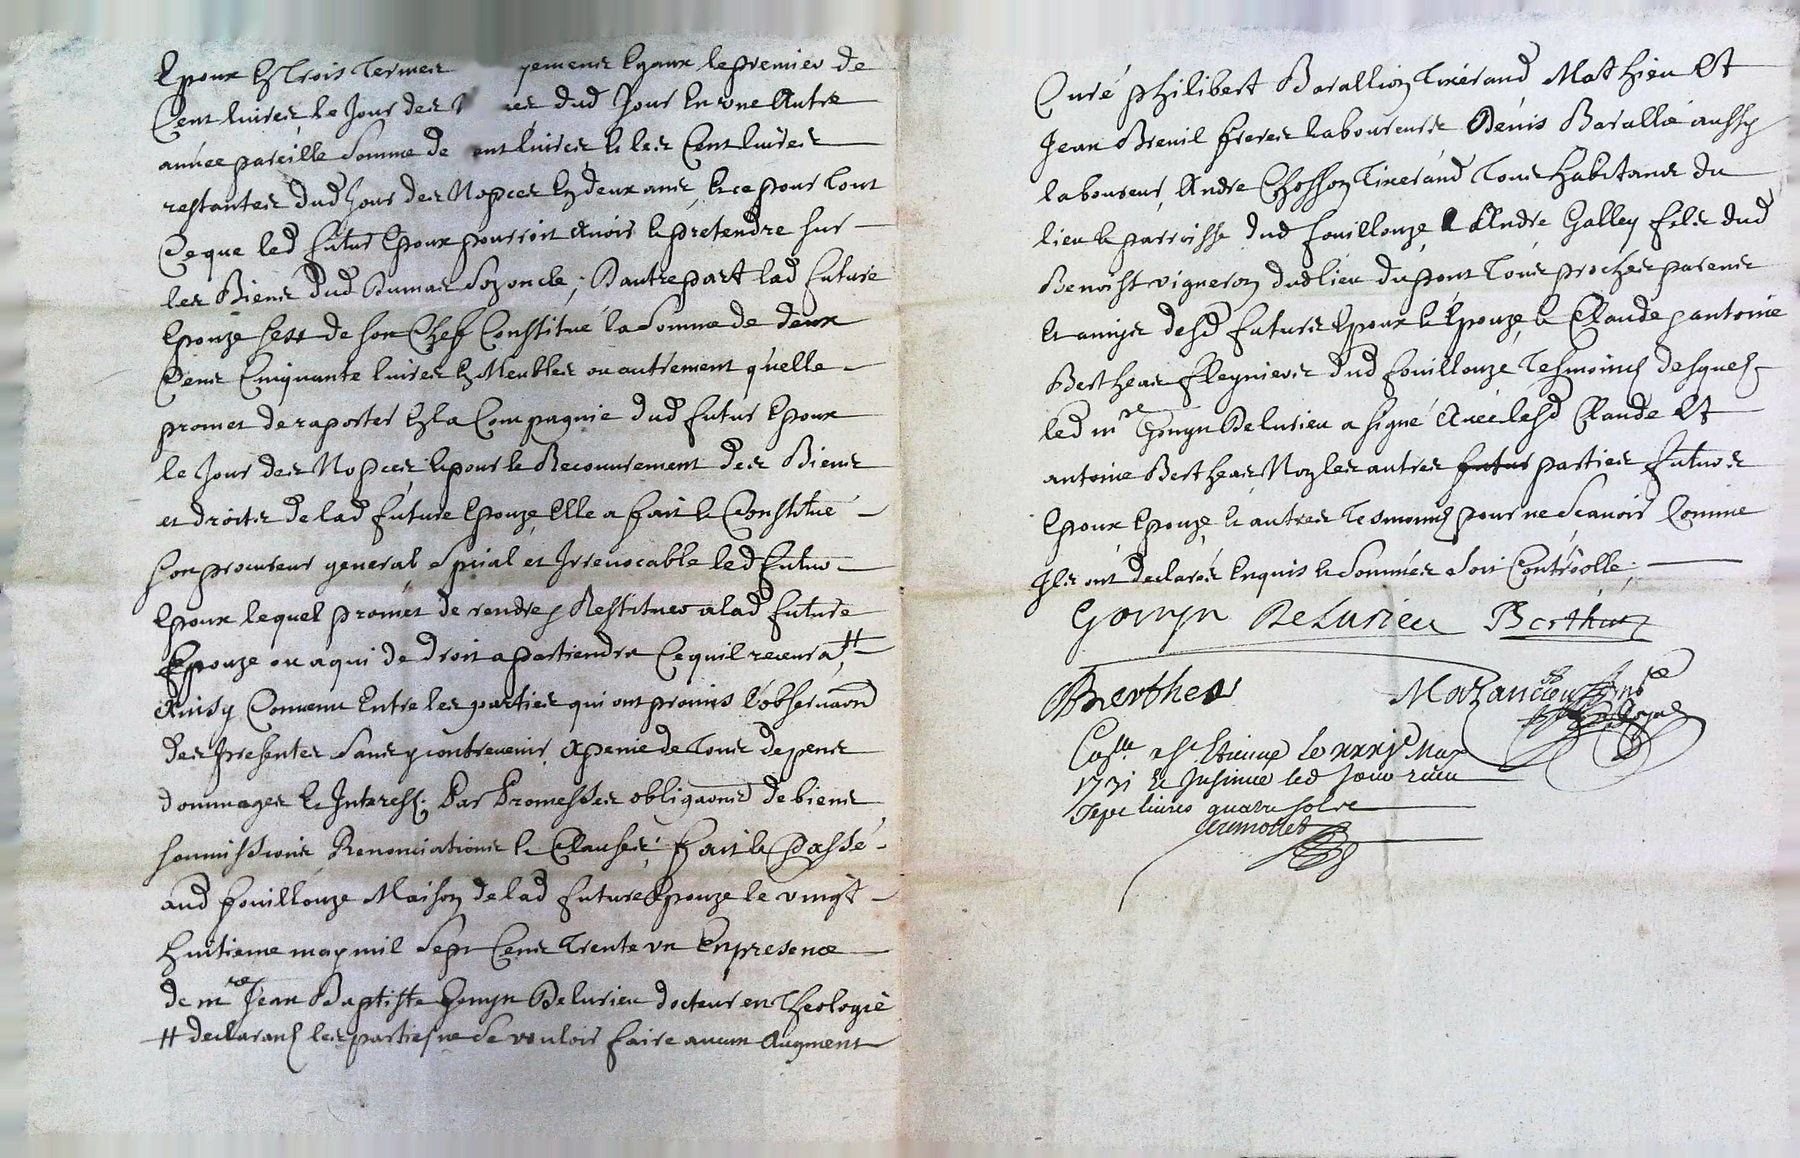 Epoux En trois termes yemens Egaux le premier de
Cent livres le Jour des dud Jour En une Autre
année pareille Somme de ent livres & les Cent livres
restantes dud Jour des Nopces En deux ans, & ce pour tout
Ce que led futur Epoux pourroit Avoir & pretendre sur
les Biens dud Dumas Son oncle; Dautre part lad future
Epouze sest de son Chef Constitué la Somme de deux
Cens Cinquante livres En Meubles ou autrement qu'elle
promet de raporter En la Compagnie dud futur Epoux
le Jour des Nopces, & pour le Recouvrement des Biens
et droits de lad future Epouze, Elle a fait & Constitué
son procureur general, Spécial et Irrevocable led futur
Epoux lequel promet de rendre & Restituer a lad future
Epouze ou a qui de droit apartiendra Ce quil recevra #
Ainsy Convenu Entre les parties qui ont promis l'observaõn
des presentes Sans y contrevenir, A peine de tous depens
dommages & Interests. Par Promesses obligaõns de biens
soumissions Renonciations & Clauses; fait & Passé
aud fouillouze Maison de lad future Epouze le vingt
huitieme may mil Sept Cens trente un En presence
de mre Jean Baptiste Gonyn Delurieu docteur en Theologie
# declarans les parties ne Se vouloir faire aucun Augment
Curé philibert Barallion Tixerand Mathieu Et
Jean Breuil freres laboureurs Denis Barallé aussy
laboureur, Andre Chosson Tixerand Tous habitans du
lieu & parroisse dud fouillouze & Andre Galley fils dud
Benoist vigneron dud lieu du pont tous proches parens
et amys desd futurs Epoux & Epouze, & Claude & antoine
Bertheas freres dud fouillouze, Tesmoins desquels
led mre Gonyn Delurieu a signé Avec lesd Claude Et
antoine Bertheas Non les autres futur parties futurs
Epoux Epouze, & autres tesmoins pour ne Scavoir Comme
Ils ont declarés Enquis & Sommés Soit Contrôollé;
Gonyn Delurieu Bertheas
Bertheas Mazancieu
a St Etienne le xxxi May
1731 & Insinué led Jour recu
Sept livres quatre sols